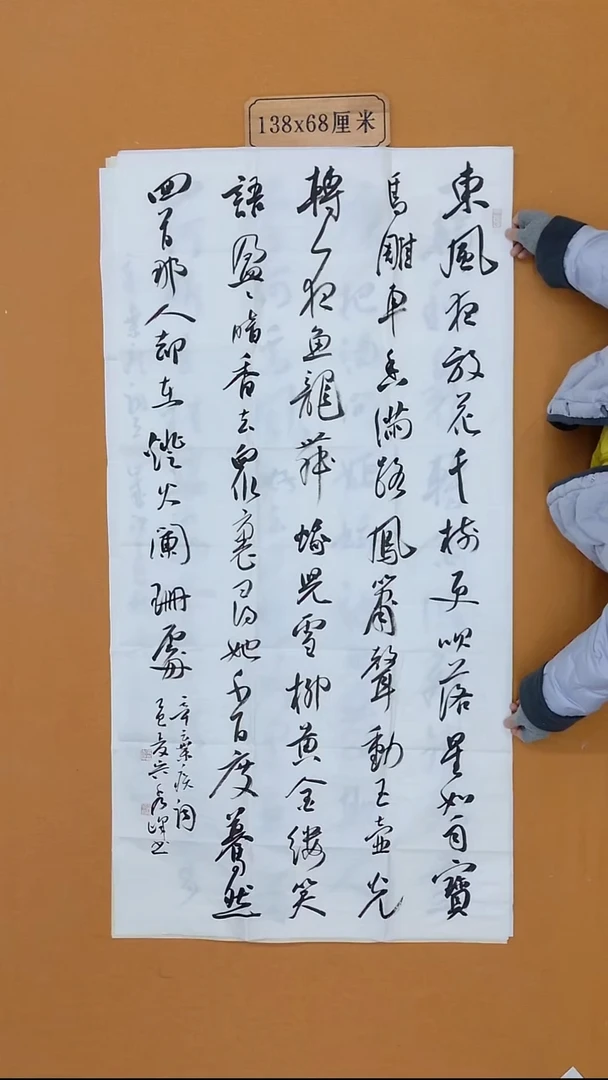 138x68厘米
東風夜放花千樹更吹落星如雨寶
馬雕車香滿路鳳簫聲動玉壺光
轉一夜魚龍舞蛾兒雪柳黃金縷笑
語盈〻暗香去眾裏尋她千百度驀然
回首那人却在燈火闌珊處
辛棄疾詞